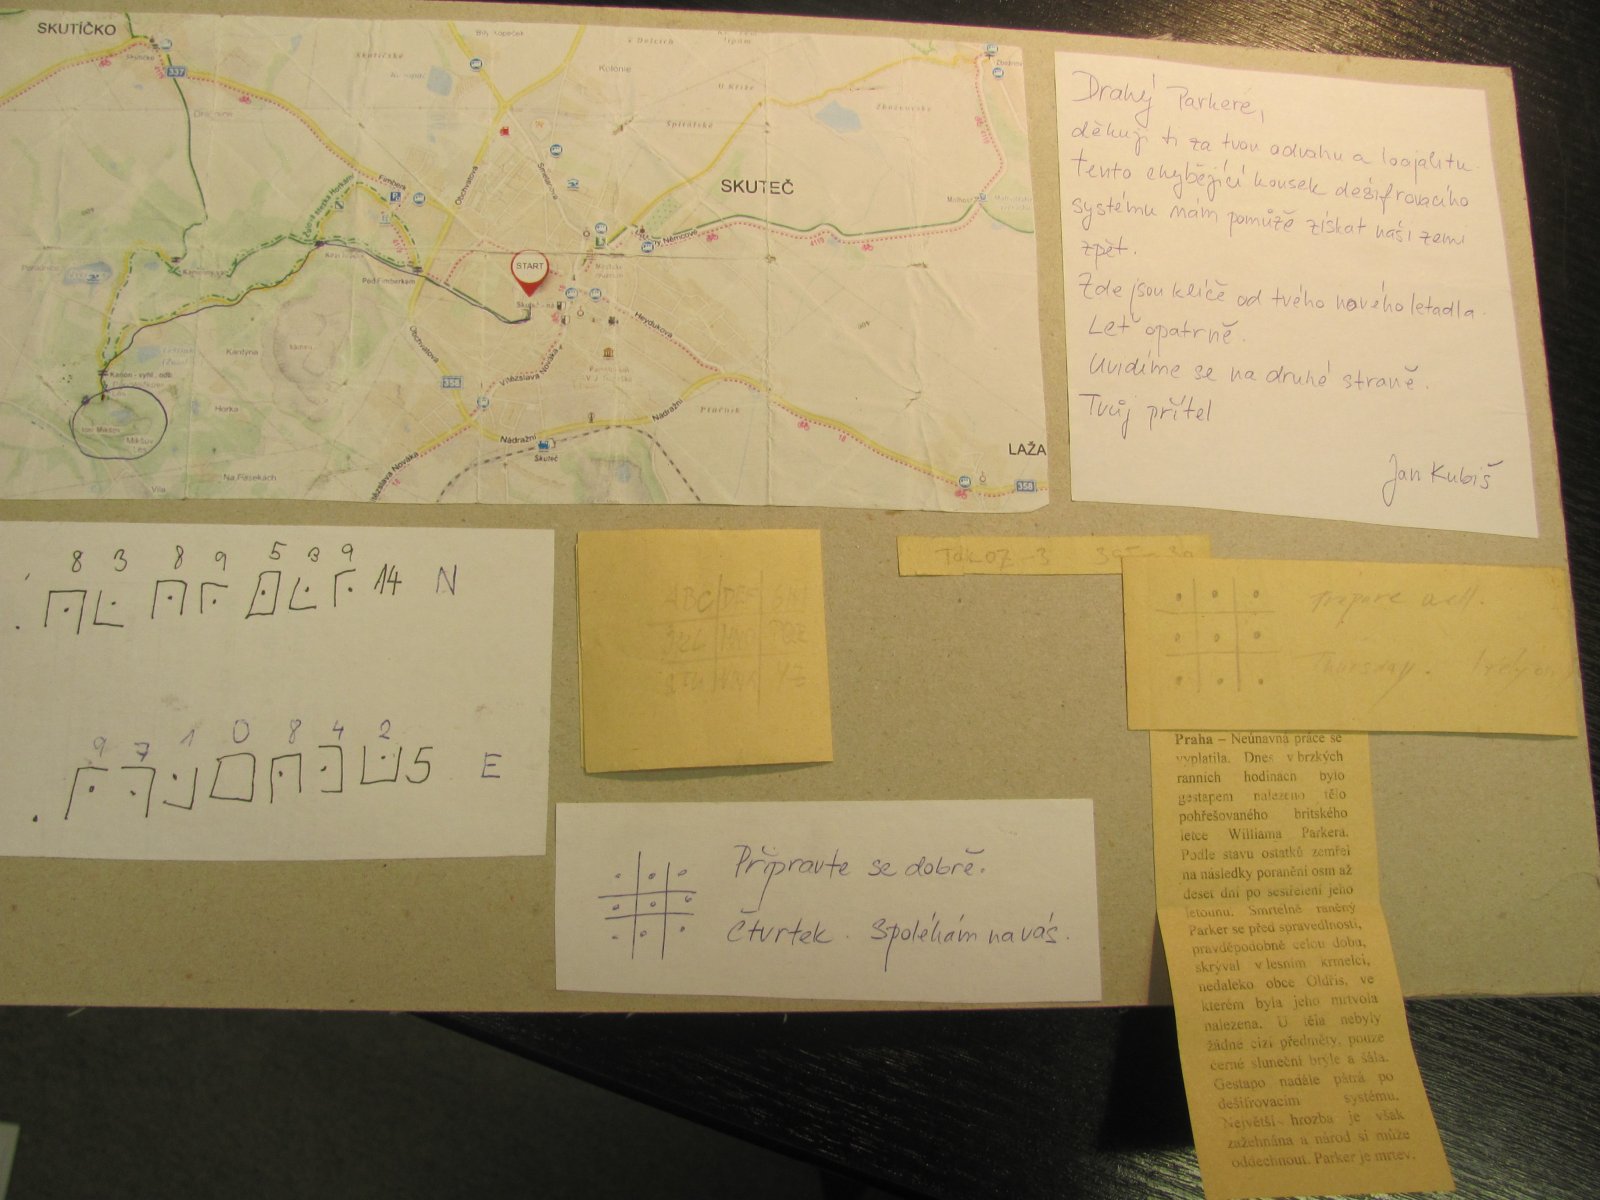 SKUTÍČKO
Skutíčko
337
Skutíčské
Kolonie
U Kříže
Špirálské
Zhořovské
Obchvatová
Smetanova
Fimberk
SKUTEČ
4119
START
Pod Fimberkem
Městské muzeum
Heydukova
Obchvatová
Vítězslava Nováka
358
Kantýna
Horka
Kaňon - vyhl., odb.
Mikšův
Les
Na Pasekách
Vila
Nádražní
Nádražní
Skuteč
Vítězslava Nováka
LAŽA
358
Drahý Parkere,
děkuji ti za tvou odvahu a loajalitu.
Tento chybějící kousek dešifrovacího
systému nám pomůže získat naši zemi
zpět.
Zde jsou klíče od tvého nového letadla.
Leť opatrně.
Uvidíme se na druhé straně.
Tvůj přítel
Jan Kubiš
8 3 8 9 5 3 9
14 N
9 7 1 0 8 4 2
5 E
ABC DEF GHI
JKL MNO PQR
STU VWX YZ
prepare well.
Thursday.
Připravte se dobře.
Čtvrtek. Spoléhám na vás.
Praha – Neúnavná práce se
vyplatila. Dnes v brzkých
ranních hodinách bylo
gestapem nalezeno tělo
pohřešovaného britského
letce Williama Parkera.
Podle stavu ostatků zemřel
na následky poranění osm až
deset dní po sestřelení jeho
letounu. Smrtelně raněný
Parker se před spravedlností,
pravděpodobně celou dobu,
skrýval v lesním krmelci,
nedaleko obce Oldřiš, ve
kterém byla jeho mrtvola
nalezena. U těla nebyly
žádné cizí předměty, pouze
černé sluneční brýle a šála.
Gestapo nadále pátrá po
dešifrovacím systému.
Největší hrozba je však
zažehnána a národ si může
oddechnout. Parker je mrtev.